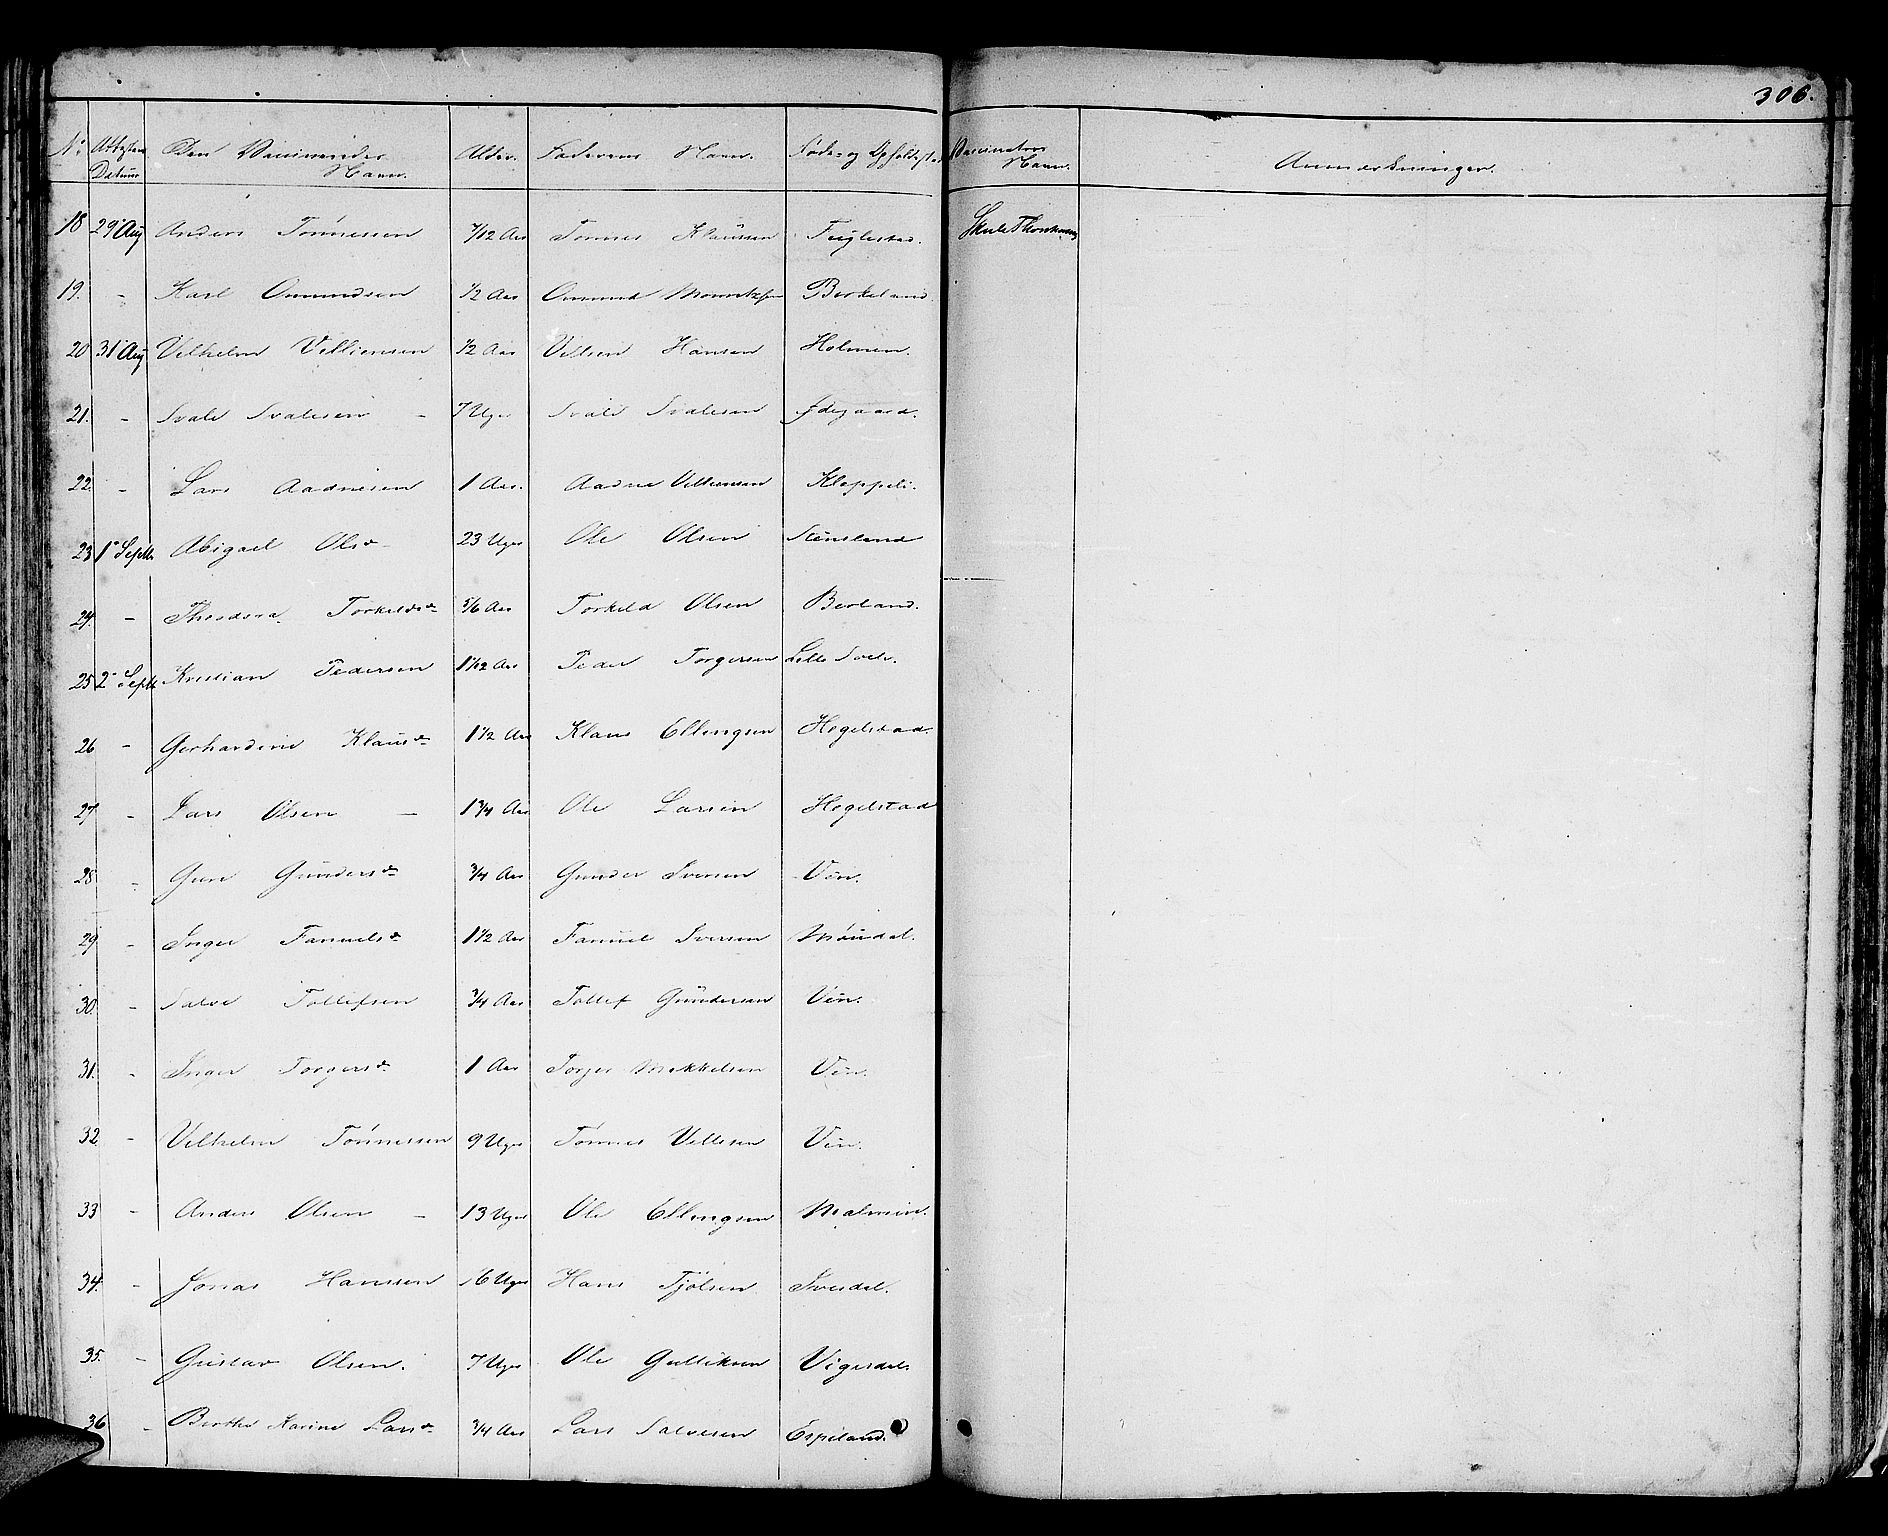 306.
No Attestens Datum Den Vaccineredes Navn. Alder. Faderens Navn. Føde- og Opholdssted Vaccinators Navn. Anmærkninger.
18 29 Aug Anders Tønnessen 7/12 Aar Tønnes Klaussen Fuglestad.
19. - Karl Ommundsen 1/2 Aar Ommund Birkeland.
20 31 Aug Vilhelm Villiumsen 1/2 Aar Hansen Holmen.
21. - Svale Svalesen - 7 Uger Svale Svalesen Ødegaard.
22. - Lars Aadnesen 1 Aar. Aadne Villiumsen Kloppeli.
23 1 Septb. Abigael Olsd. 23 Uger Ole Olsen Stensland
24. - Theodora Torkeldsd. 5/6 Aar Torkeld Olsen Berland.
25 2 Septb. Kristian Pedersen 1 1/12 Aar Peder Torgersen Lille Svele.
26 - Gerhardine Klausd. 1 1/2 Aar Klaus Ellingsen Hegelstad.
27 - Lars Olsen - 1 3/4 Aar Ole Larsen Hegelstad
28 - Guri Gundersd. 3/4 Aar Gunder Iversen Vin.
29 - Inger Fanuelsd. 1 1/2 Aar Fanuel Iversen Møndal.
30. - Salve Tollefsen 3/4 Aar Tollef Gundersen Vin.
31. - Inger Torgersd. 1 Aar Torger Mikkelsen Vin.
32 - Vilhelm Tønnessen 9 Uger Tønnes Villesen Vin.
33 - Anders Olsen - 13 Uger Ole Ellingsen Malmein.
34. - Jonas Hanssen 16 Uger Hans Tjølsen Ivesdal.
35. - Gustav Olsen. 7 Uger Ole Gulliksen Vigesdal.
36 - Berthe Karine Larsd. 3/4 Aar Lars Salvesen Espeland.